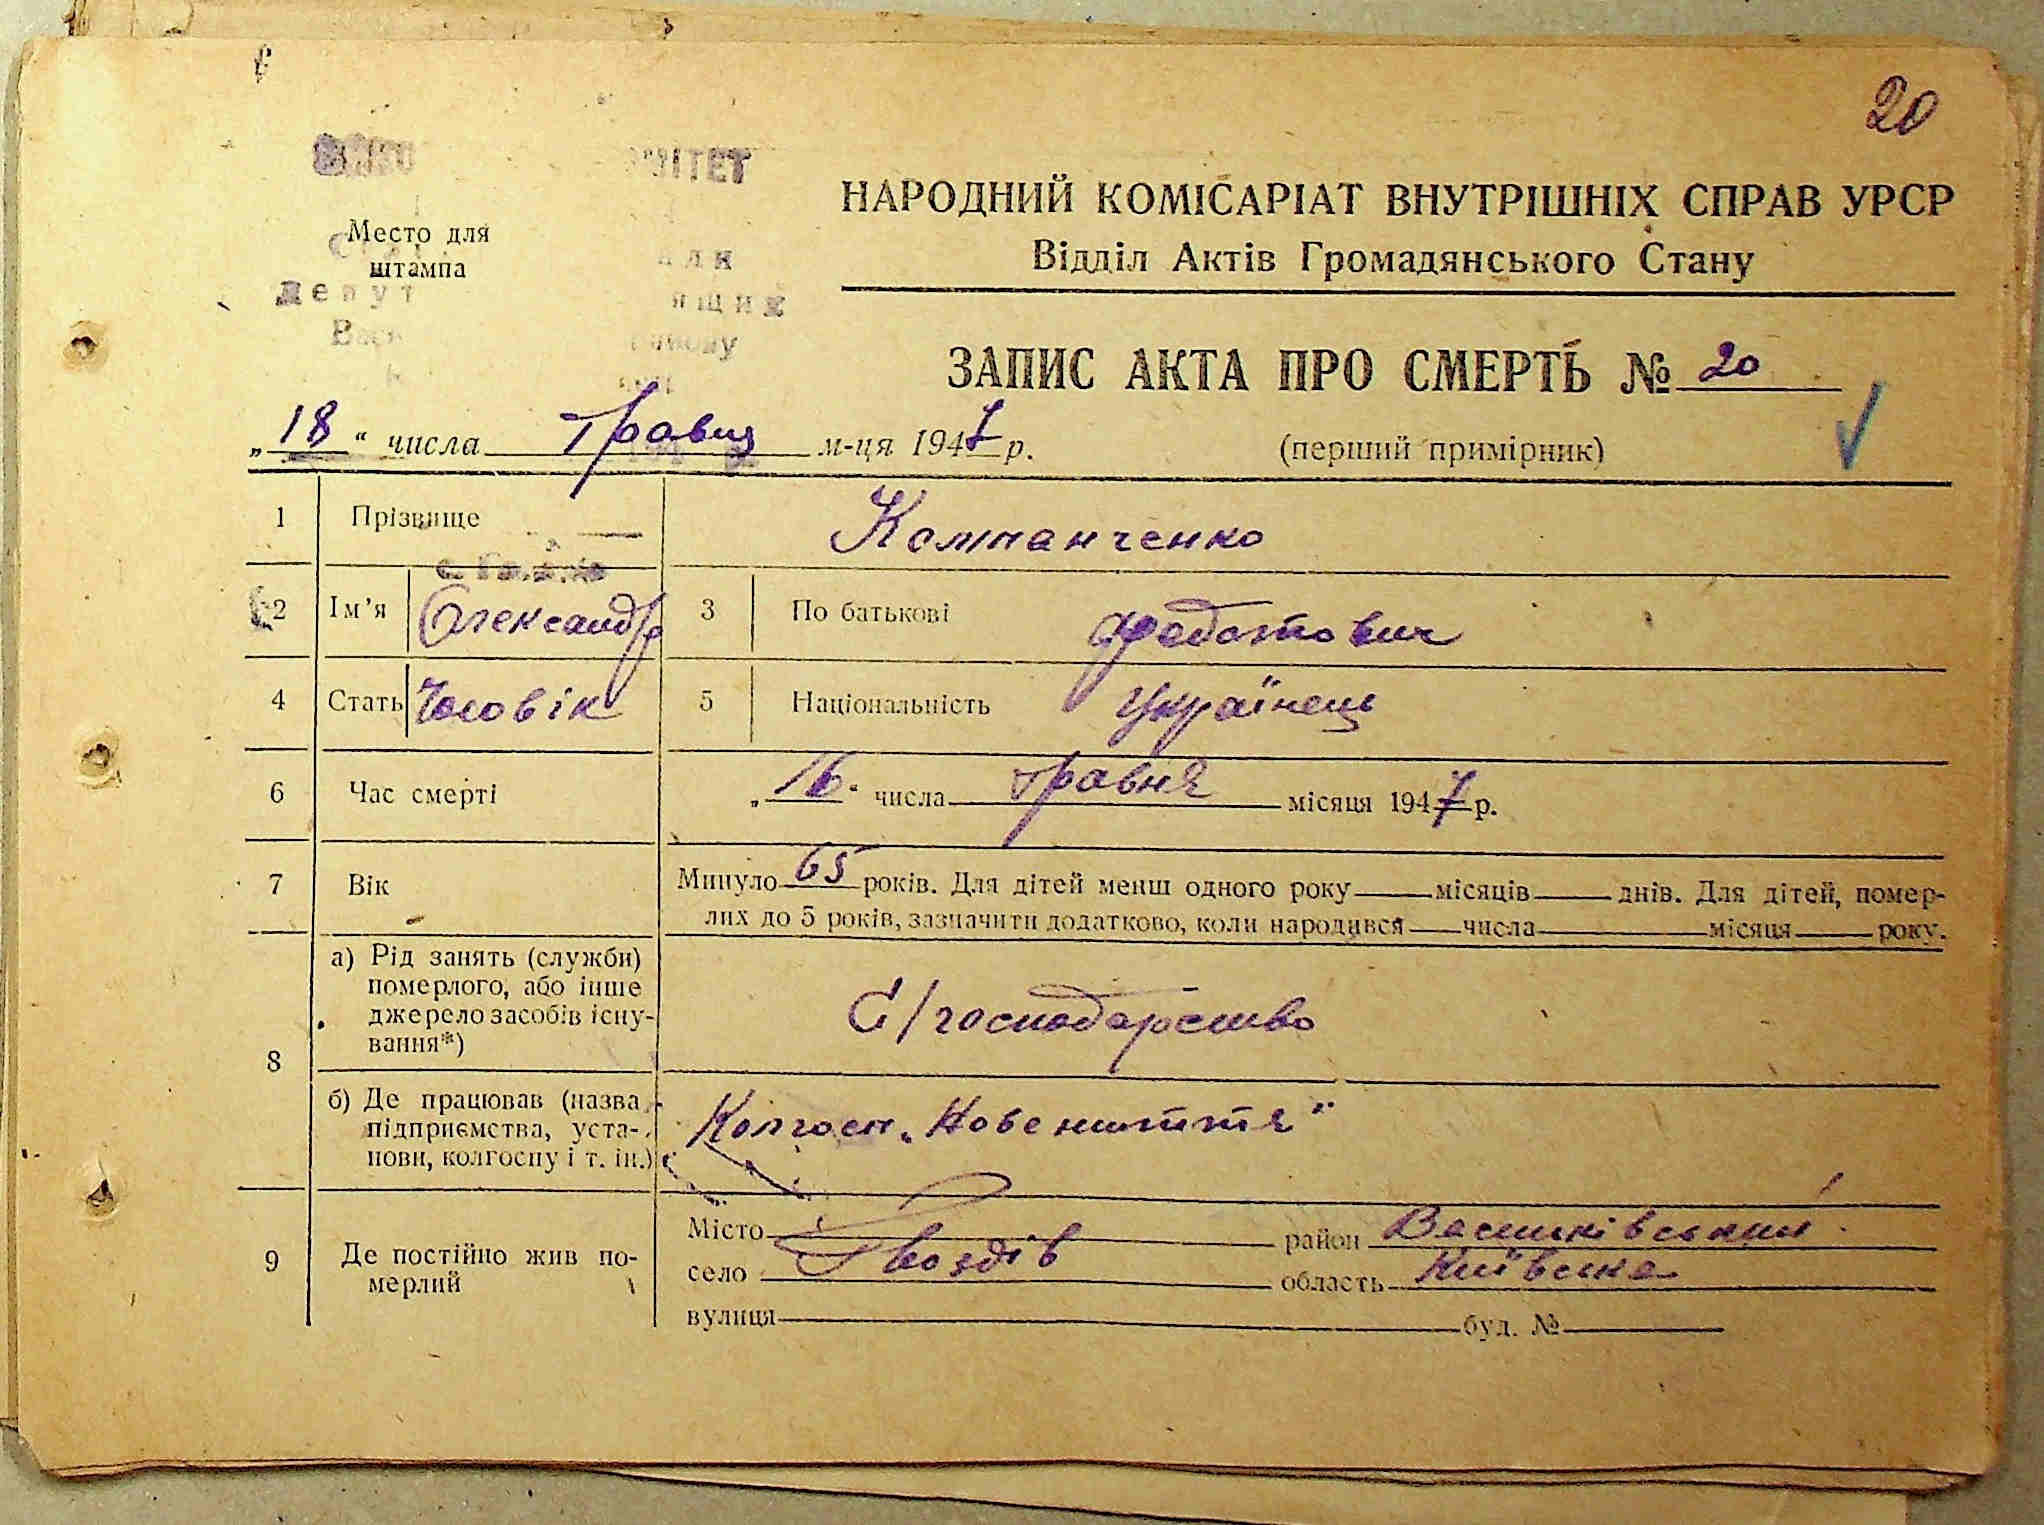 20
ІТЕТ
НАРОДНИЙ КОМІСАРІАТ ВНУТРІШНІХ СПРАВ УРСР
Место для
штампа
Відділ Актів Громадянського Стану
ЗАПИС АКТА ПРО СМЕРТЬ № 20
„18“ числа Травня м-ця 1947 р.
(перший примірник)
1 Прізвище Компанченко
2 Ім'я Олександр 3 По батькові Федотович
4 Стать Чоловік 5 Національність Українець
6 Час смерті „16“ числа травня місяця 1947 р.
7 Вік Минуло 65 років. Для дітей менш одного року місяців днів. Для дітей, помер-
лих до 5 років, зазначити додатково, коли народився числа місяця року.
8 а) Рід занять (служби)
померлого, або інше
джерело засобів існу-
вання*)
С/господарство
б) Де працював (назва
підприємства, уста-
нови, колгоспу і т. ін.)
Колгосп „Нове життя"
9 Де постійно жив по-
мерлий
Місто район Васильківський
село Гвоздів область Київська
вулиця буд. №